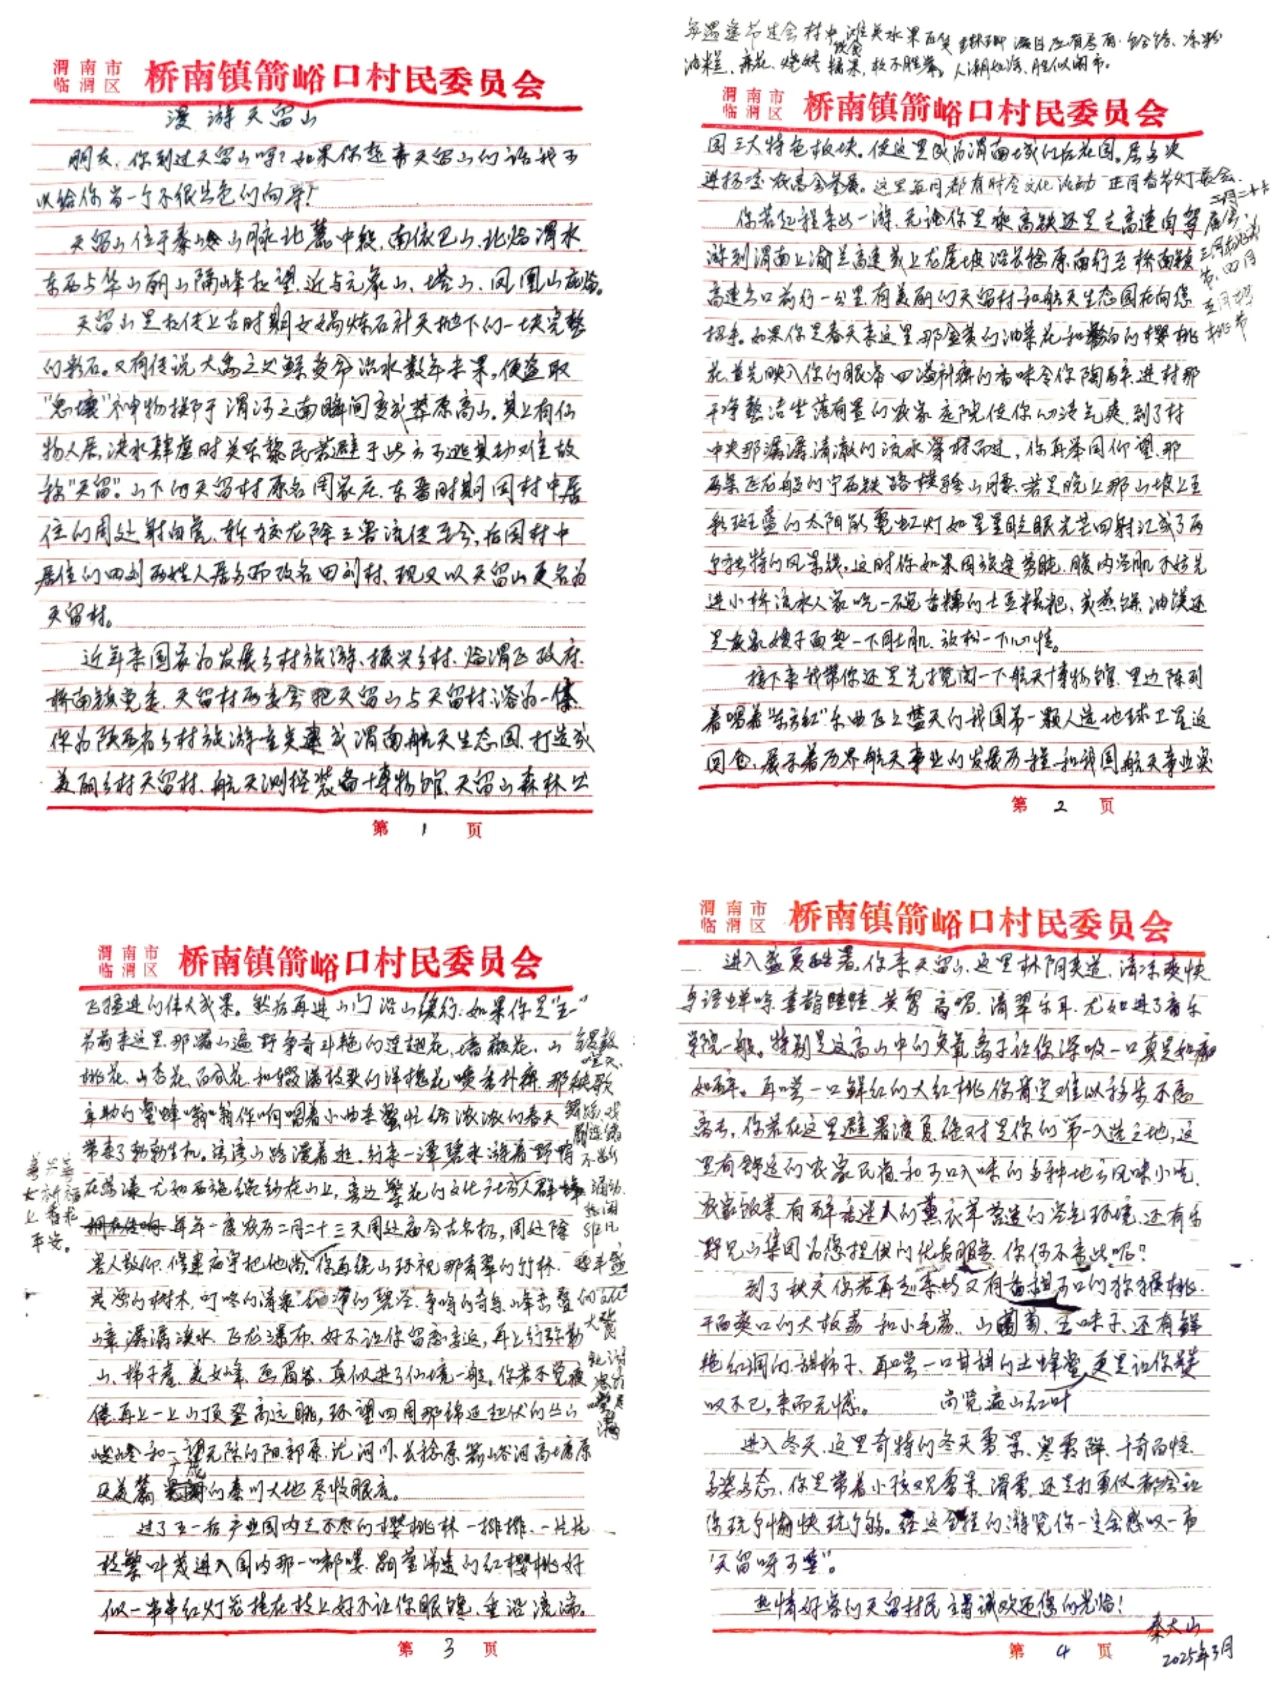 渭南市
临渭区 桥南镇箭峪口村民委员会
漫游天留山
朋友,你到过天留山吗?如果你想来天留山的话我可
以给你当一个不很出色的向导!
天留山位于秦岭山脉北麓中段,南依巴山,北临渭水
东西与华山骊山隔峰相望,近与元象山、塔山、凤凰山
天留山是相传上古时期女娲炼石补天抛下的一块完整
的彩石。又有传说大禹之父鲧受命治水数年未果,便盗取
"息壤"神物掷于渭河之南瞬间变成莽原高山。其上有仙
物人居,洪水肆虐时关东黎民若避于此方可逃其劫难故
称"天留"。山下的天留村原名周家庄,东晋时期因村中居
住的周处射白虎,斩蛟龙除三害流传至今,后因村中
居住的田刘两姓人居多而改名田刘村,现又以天留山更名为
天留村。
近年来国家为发展乡村旅游、振兴乡村,临渭区政府
桥南镇党委,天留村两委会把天留山与天留村溶为一体
作为陕西省乡村旅游重点建成渭南航天生态园,打造成
美丽乡村天留村,航天测控装备博物馆,天留山森林公
第 1 页
每遇逢节过会村中摊点水果百货
油糕、麻花、烧烤糖果,数不胜举,人潮如海,胜似闹市。
渭南市
临渭区 桥南镇箭峪口村民委员会
园三大特色板块。使这里成为渭南城的后花园。屡多次
进杨凌农高会参展。这里每月都有时令文化活动 正月春节灯展会,
二月二十六
你若起程来此一游,无论你是乘高铁还是走高速自驾
游到渭南上渝兰高速或上龙尾坡沿长稔原南行至桥南镇
高速出口前行一公里,有美丽的天留村和航天生态园在向您
招手。如果你是春天来这里那金黄的油菜花和粉白的樱桃
花首先映入你的眼帘 四溢扑鼻的香味令你陶醉,进村那
干净整洁坐落有置的农家庭院使你心清气爽,到了村
中央那潺潺清澈的流水穿村而过,你再举同仰望,那
两条飞龙般的宁西铁路横骑山间,若是晚上那山坡上五
彩斑蓝的太阳能霓虹灯如星星眨眼光芒四射汇成了两
个独特的风景线,这时你如果因旅途劳眈,腹内空肌不妨先
进小桥流水人家吃一碗香糯的土豆糍粑,或蒸馍油馍还
是农家嫂子面垫一下肚肌,放松一下心情。
接下来我带你还是先搅阅一下航天博物馆,里边陈列
着唱着"东方红"乐曲飞上蓝天的我国第一颗人造地球卫星返
回仓,展示着历界航天事业的发展历程和我国航天事业突
第 2 页
渭南市
临渭区 桥南镇箭峪口村民委员会
飞猛进的伟大成果。然后再进山门沿山缓行,如果你是"五一"
节前来这里,那满山遍野争奇斗艳的连翘花,墙薇花,山
桃花、山杏花、百合花,和缀满枝头的洋槐花喷香扑鼻,那
辛助的蜜蜂嗡嗡你哼唱着小曲来蜜忙给浓浓的春天
带来了勃勃生机。
在荡漾,尤如西施纱在山上,旁边繁花的文化广场人群
每年一度农历二月二十三天周处庙会古名扬,周处除
害人敬仰,你再绕山环视那青翠的竹林,
茂密的树木,叮咚的清泉
潺潺溪水,飞龙瀑布,好不让你留恋忘返,再上行弥勒
山、梯子崖、美女峰、画眉谷,真似进了仙境一般。你若不觉疲
倦再上一上山顶登高远眺,环望四周那锦延起伏的丛山
峻岭和一望无际的阳郭原,沈河川,长稔原
的秦川大地尽收眼底。
过了五一后产业园内三不尽的樱桃林一排排,一片片
枝繁叶茂进入园内那一嘟噜晶莹涕透的红樱桃好
似一串串红灯笼挂在枝上好不让你眼馋,垂涎流涕。
善男信女上香祈福求平安。
第 3 页
渭南市
临渭区 桥南镇箭峪口村民委员会
进入盛夏酷暑,你来天留山,这里林阴夹道,清凉爽快
鸟语蝉鸣,喜鹊喳喳,黄莺高唱,清翠乐耳,尤如进了音乐
学院一般。特别是这高山中的负氧离子让你深吸一口真是如痴
如醉。再尝一口鲜红的大红桃你肯定难以移步不愿
离去,你若在这里避暑渡夏绝对是你的第一入选之地,这
里有舒适的农家民宿和可口入味的多种地方风味小吃,
农家饭菜,有醉香迷人的薰衣草营造的紫色环境,还有乡
野见山集团为您提供的优质服务,你何不来此呢?
到了秋天你若再走来此又有香甜可口的猕猴桃,
干面爽口的大板荔和小毛荔,山葡萄、五味子,还有鲜
艳红润的甜柿子,再尝一口甘甜的土蜂蜜,更是让你赞
叹不已,来而无憾。 尚览遍山红叶
进入冬天,这里奇特的冬天雪景,寒霜降,千奇百怪,
多姿多态,你是带着小孩观雪景,滑雪,还是打雪仗都会让
你玩个愉快玩个够。经这全程的游览你一定会感叹一声
"天留呀可垂"。
热情好客的天留村民主旨诚欢迎您的光临!
秦大山
2025年3月
第 4 页